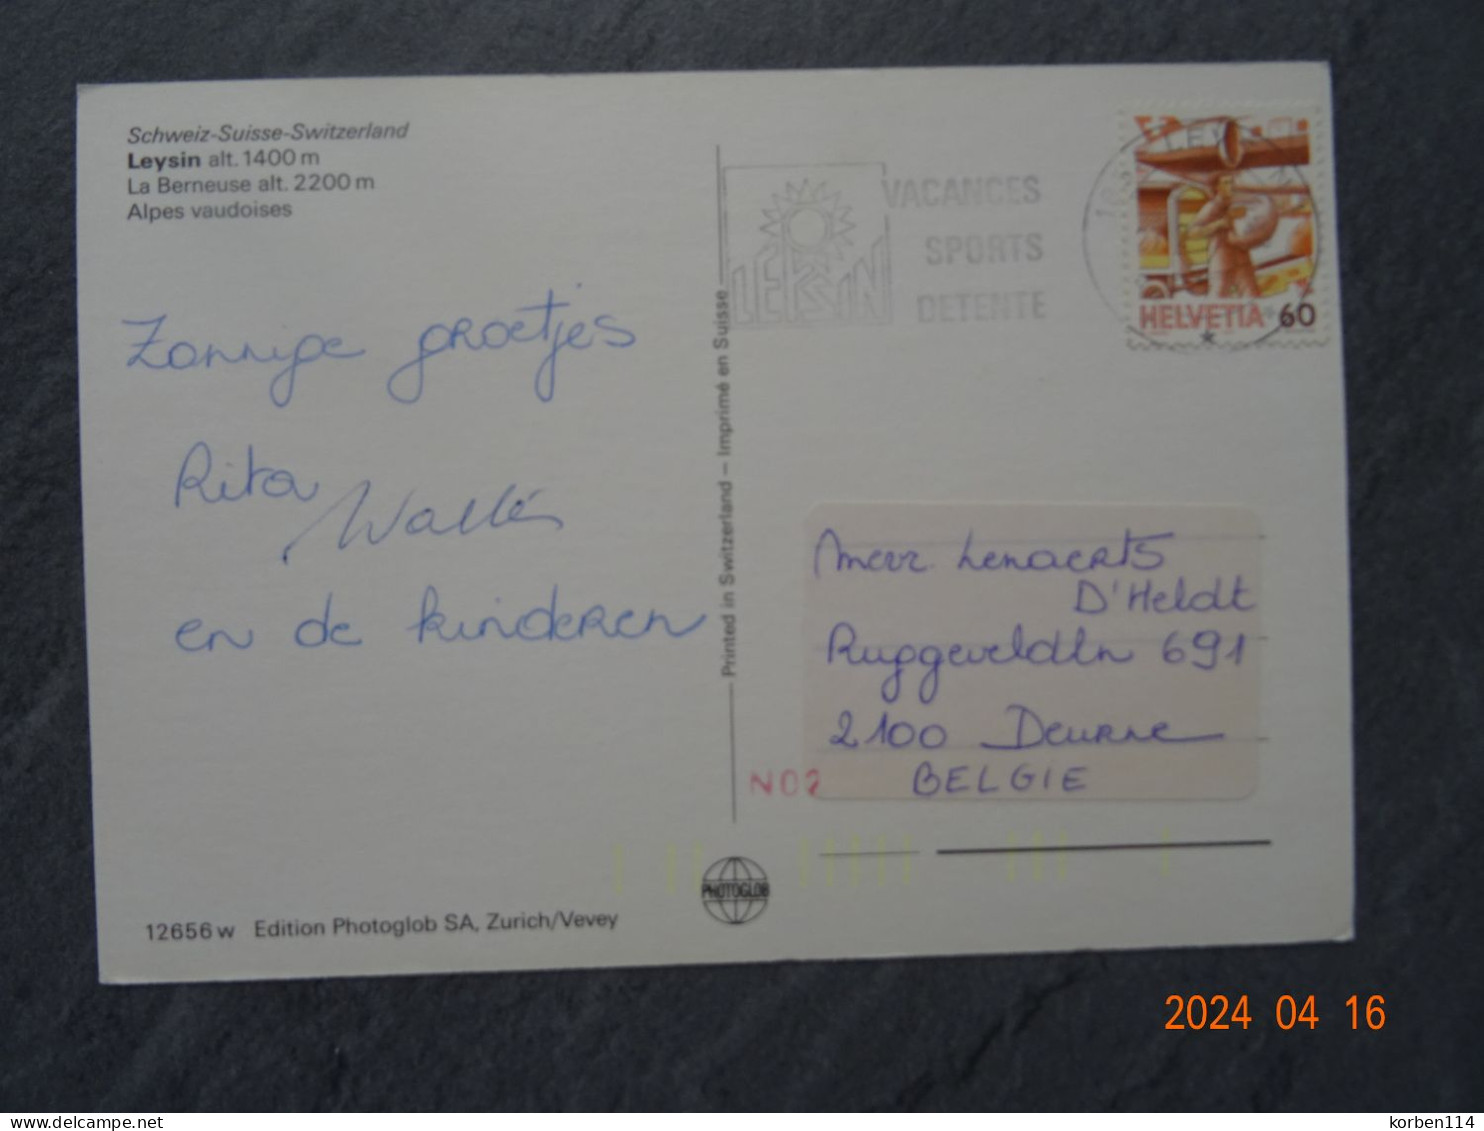 Schweiz-Suisse-Switzerland
Leysin alt. 1400 m
La Berneuse alt. 2200 m
Alpes vaudoises
Zonnige groetjes
Rita
en de kinderen
12656 w Edition Photoglob SA, Zurich/Vevey
Printed in Switzerland – Imprimé en Suisse
PHOTOGLOB
LEYSIN
VACANCES
SPORTS
DETENTE
HELVETIA 60
Mevr. Lenaerts
D'Heldt
Ruggeveldln 691
2100 Deurne
BELGIE
N02
2024 04 16
delcampe.net
korben114